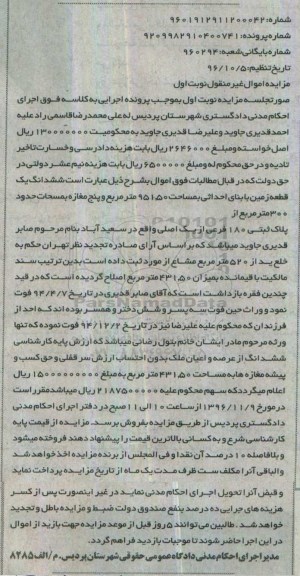 شماره:۹۶۰۱۹۱۲۹۱۱۲۰۰۰۴۲
شماره پرونده:۹۲۰۹۹۸۲۹۱۰۴۰۰۷۴۱
شماره بایگانی شعبه:۹۶۰۲۹۴
تاریخ تنظیم:۹۶/۱۰/۵
مزایده اموال غیر منقول نوبت اول
صورتجلسه مزایده نوبت اول بموجب پرونده اجرایی به کلاسه فوق اجرای
احکام مدنی دادگستری شهرستان پردیس له علی محمد رضا قاسمی راد علیه
احمد قدیری جاوید و علیرضا قدیری جاوید به محکومیت ۱۳۰۰۰۰۰۰۰ ریال
اصل خواسته و مبلغ ۲۶۴۶۰۰۰ ریال بابت هزینه دادرسی و خسارت تاخیر
تادیه و در حق محکوم له و مبلغ ۶۵۰۰۰۰۰ ریال بابت هزینه نیم عشر دولتی در
حق دولت که در قبال مطالبات فوق اموال بشرح ذیل عبارت است ششدانگ یک
قطعه زمین با بنای احداثی بمساحت ۹۵/۵۰ متر مربع و پنج مغازه بمساحت حدود
۳۰۰ متر مربع از
پلاک ثبتی ۱۸۰ فرعی از یک اصلی واقع در سعید آباد بنام مرحوم صابر
قدیری جاوید میباشد که بر اساس آرای صادره تجدید نظر تهران حکم به
خلع ید از ۵۲۰ متر مربع مشاع از مورد ثبت داده است بدین ترتیب سند
مالکیت با قیمانده بمیزان ۴۴۳/۵۰ متر مربع اصلاح گردیده است که در قید
چندین فقره بازداشت است که آقای صابر قدیری در تاریخ ۹۴/۴/۷ فوت
نمود و وراث حین فوت سه پسر و شش دختر و همسر بوده اند که احد از
فرزندان که محکوم علیه علیرضا نیز در تاریخ ۹۴/۱۲/۲ فوت نموده که تنها
ورثه مرحوم مادر ایشان خانم بتول رضائی میباشد که ارزش پایه کارشناسی
ششدانگ از عرصه و اعیان ملک بدون احتساب ارزش سر قفلی و حق کسب و
پیشه مغازه ها به مساحت ۴۴۳/۵۰ متر مربع به مبلغ ۱۵۰۰۰۰۰۰۰۰۰ ریال
اعلام میگردد که سهم محکوم علیه ۲۱۸۷۵۰۰۰۰۰ ریال میباشد مقرر است
در مورخ ۱۳۹۶/۱۱/۹ از ساعت ۱۰ الی ۱۱ صبح در دفتر اجرای احکام مدنی
دادگستری پردیس از طریق مزایده بفروش برسد. مزایده از قیمت پایه
کارشناسی شرع و به کسانی بالاترین قیمت را پیشنهاد دهند فروخته میشود
و بلافاصله ۱۰ درصد آن نقدا و فی المجلس از برنده مزایده اخذ خواهد شد
و الباقی آنرا مکلف ست ظرف مدت یک ماه از تاریخ مزایده پرداخت نماید
و قبض آنرا تحویل اجرای احکام مدنی نماید در غیر اینصورت پس از کسر
هزینه های جرایی ده درصد بنفع صندوق دولت ضبط و مزایده باطل و تجدید
خواهد شد. طالبین می توانند ۵ روز قبل از موعد مزایده جهت بازید از اموال
در این اجرا حاضر شوند تا موجبات بازدید فراهم گردد.
مدیر اجرای احکام مدنی دادگاه عمومی حقوقی شهرستان پردیس. م/الف ۸۲۸۵